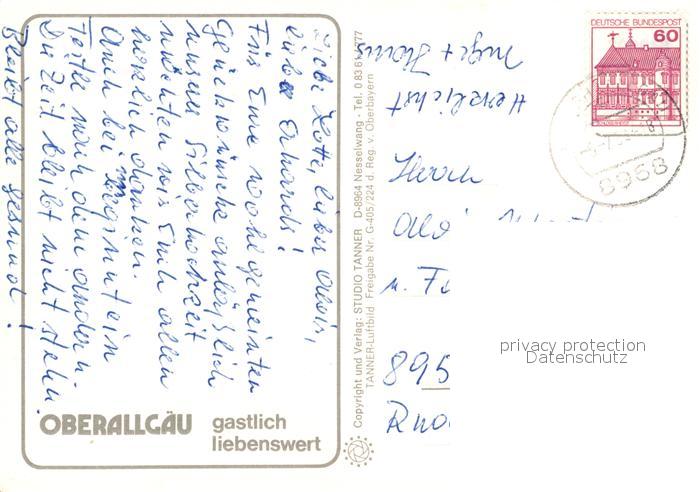 Liebe Lotte, lieber Alois,
liebe Erhards!
Für Eure wohlgemeinten
Glückwünsche anläßlich
unserer Silberhochzeit
möchten wir Euch allen
herzlich danken.
Auch bei uns rennt ein
Termin nach dem andern.
Die Zeit bleibt nicht stehn.
Bleibt alle gesund!
Herzlichst
Inge + Hans
OBERALLGÄU
gastlich
liebenswert
Copyright und Verlag: STUDIO TANNER D-8964 Nesselwang · Tel. 0 83 61/777
TANNER-Luftbild Freigabe Nr. G-405/224 d. Reg. v. Oberbayern
DEUTSCHE BUNDESPOST
60
8968
Herrn
Aloi
u. Fa
895
privacy protection
Datenschutz